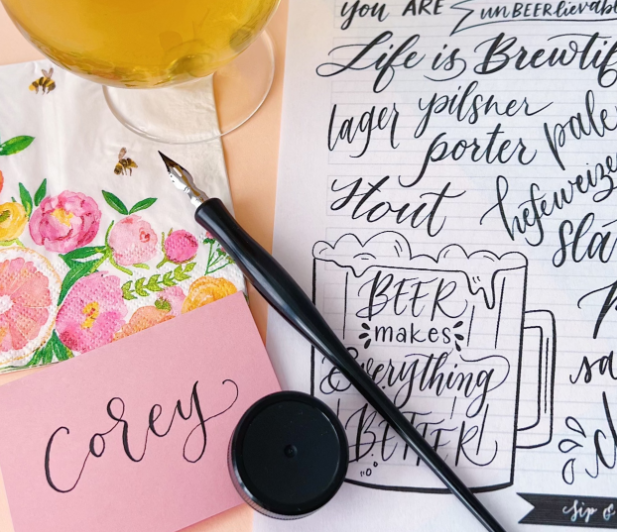 you ARE unBEERlievabl
Life is Brewtif
lager pilsner pale
porter
Stout hefeweize
BEER
makes
Everything
BETTER
Corey
Sip &